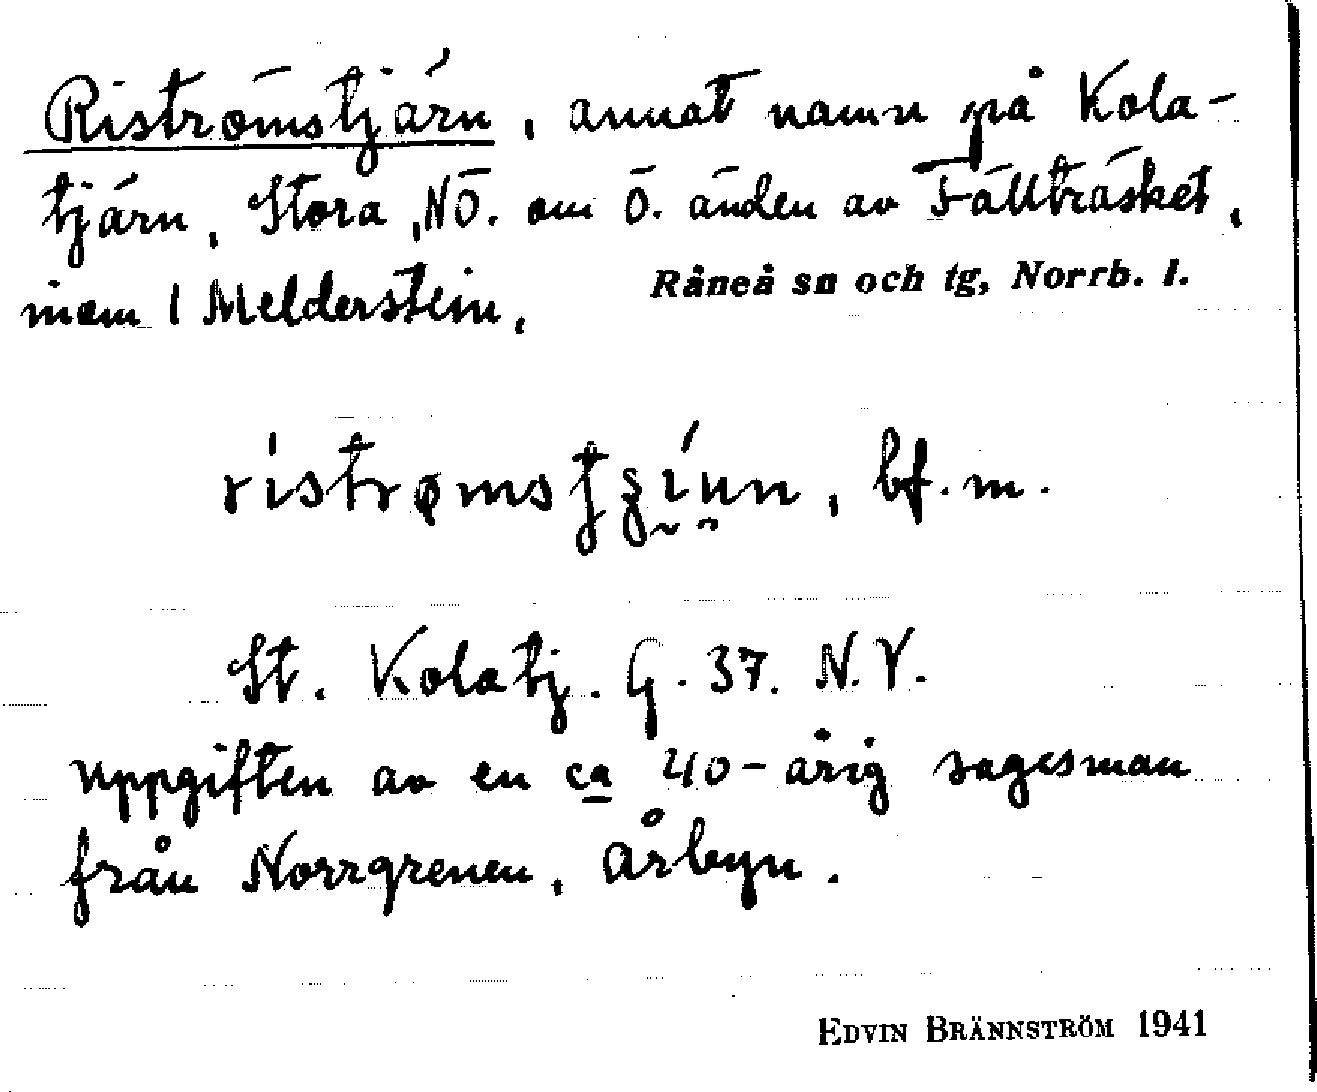 Riströmstjärn, annat namn på Kola-
tjärn, Stora, NÖ. om Ö. änden av Fällträsket,
inom 1 Melderstein. Råneå sn och tg, Norrb. l.
bf. m.
St. Kolatj. G. 37. N.V.
Uppgiften av en ca 40-årig sagesman
från Norrgrenen, Årbyn.
EDVIN BRÄNNSTRÖM 1941